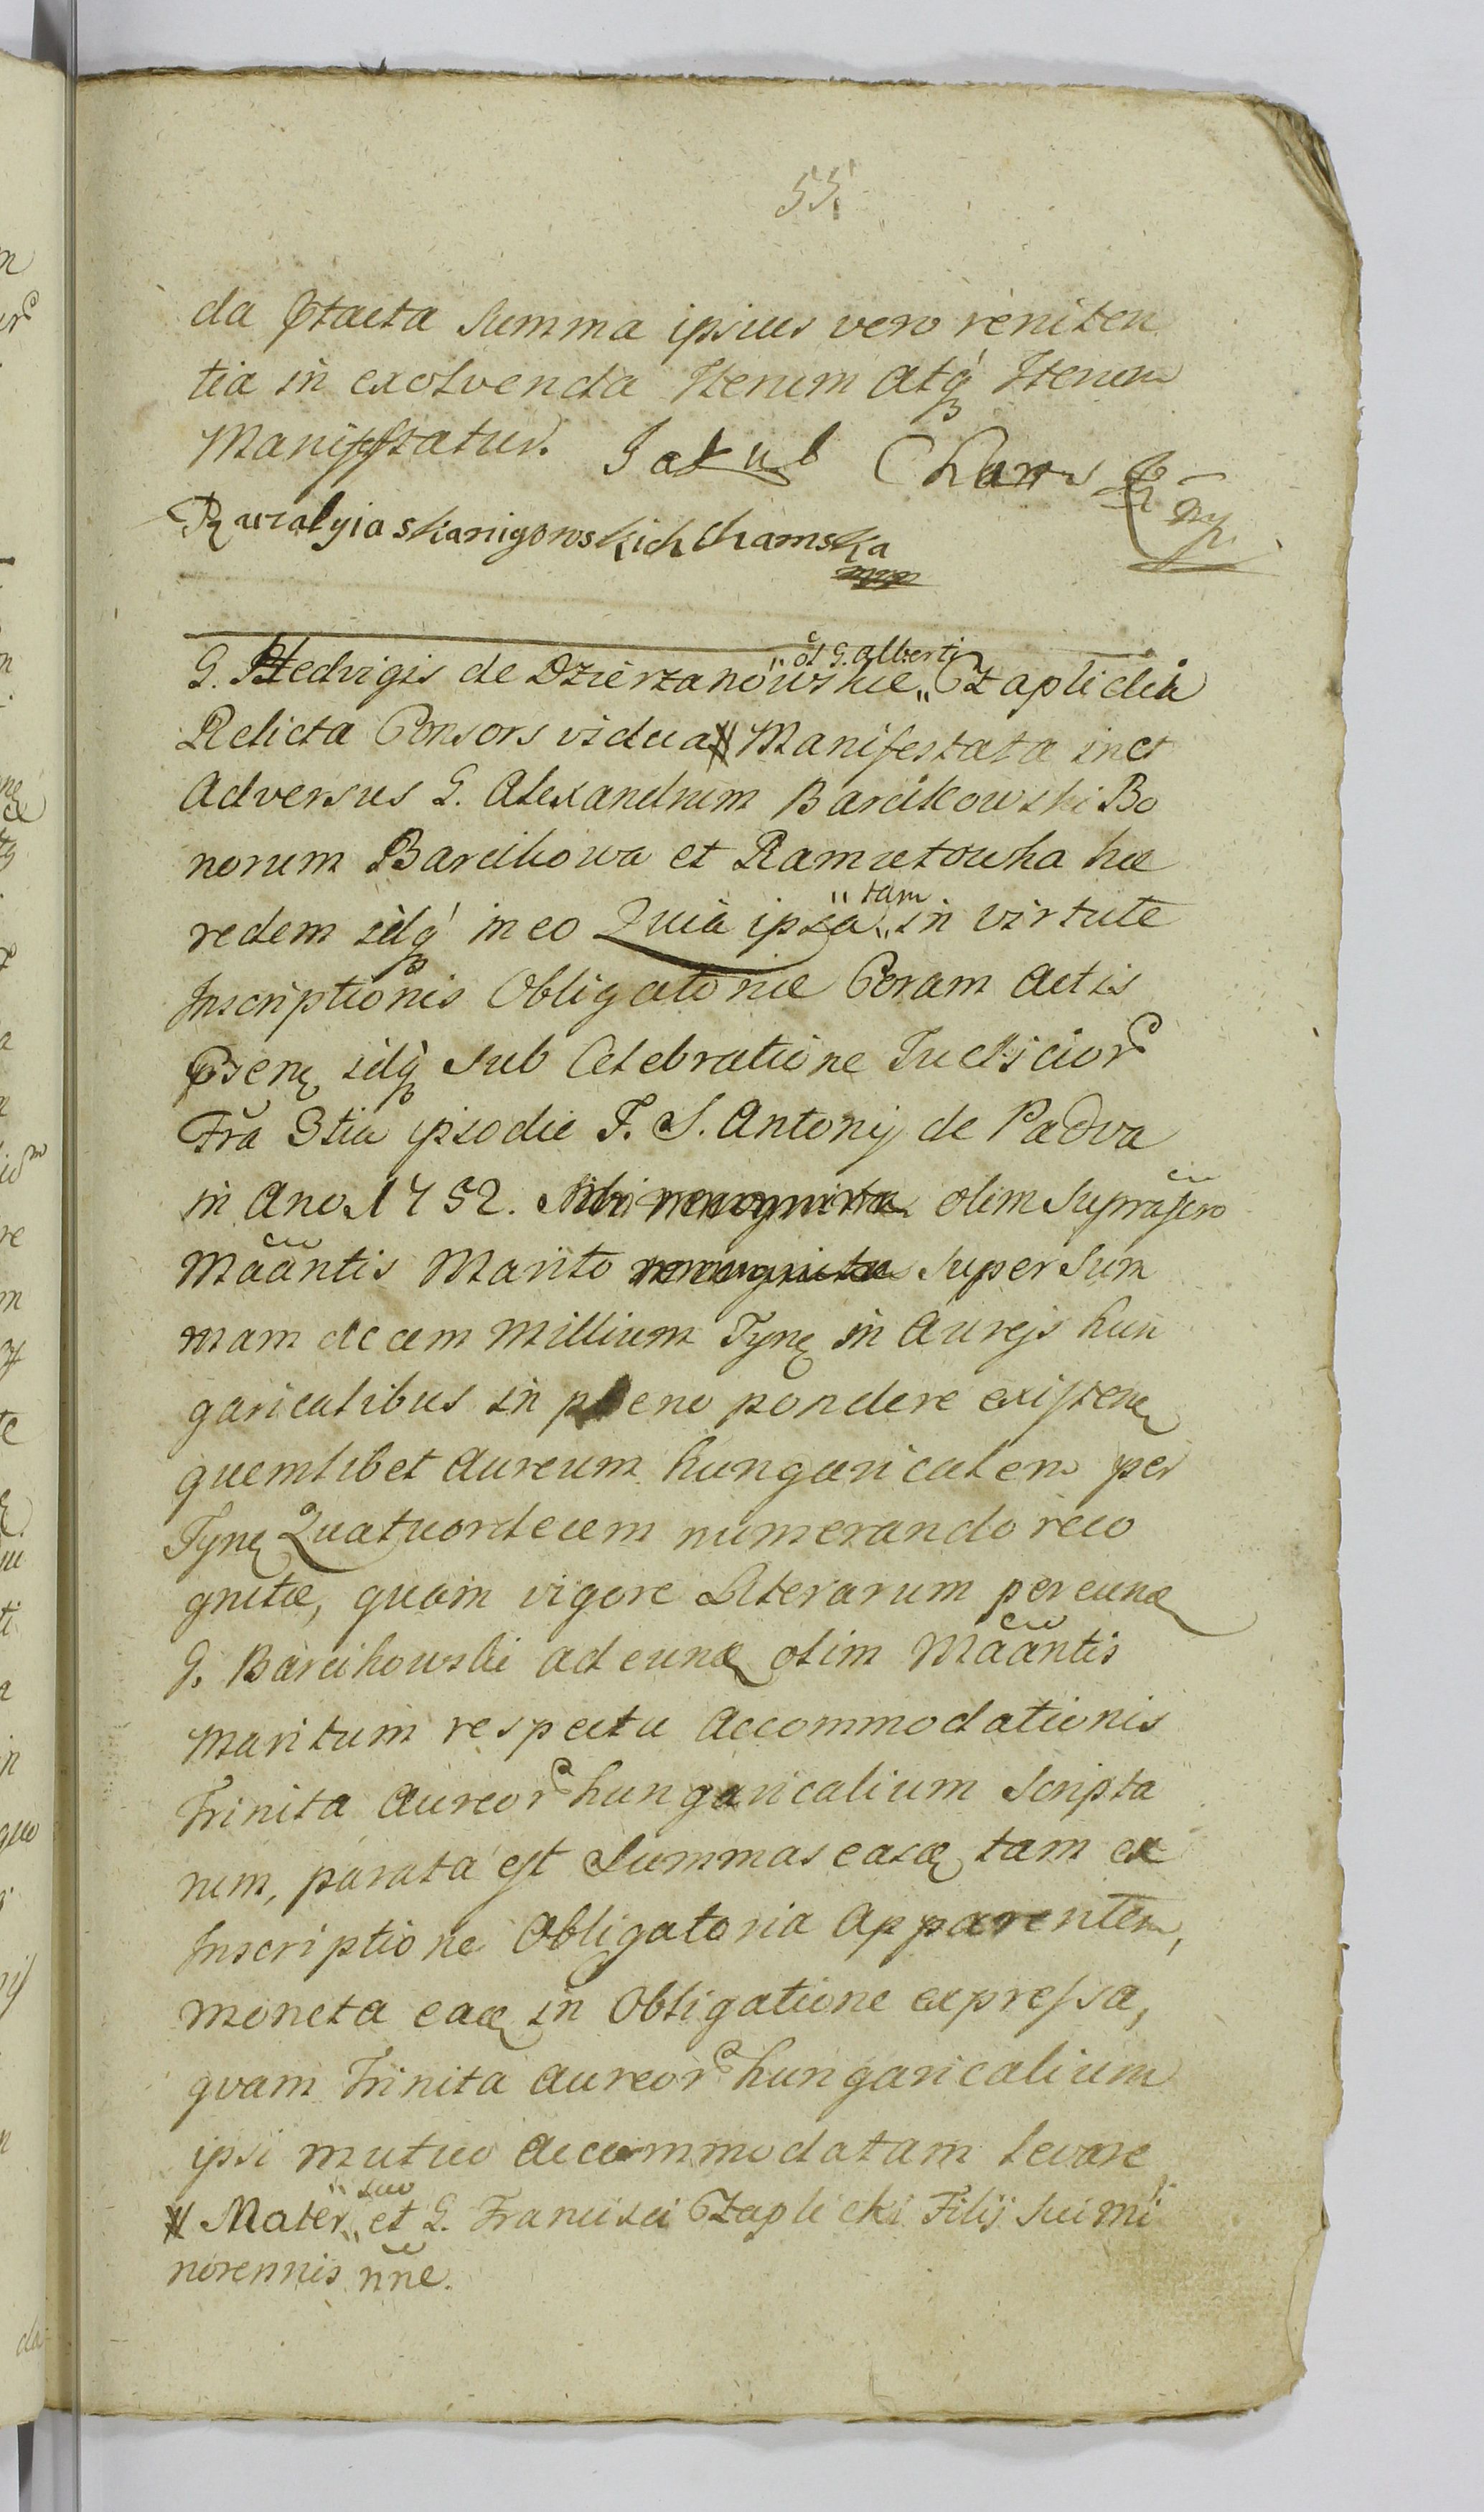 55.
da ptacta Summa ipsius vero reniten
tia in exolvenda Iterum atq Iterum
Manifestatur. Jakub Chamski mp
Rozalyia skanigowskich Chamska
mpp
G. Hedvigis de Dzierzanowskie " ol G. Alberti " Czaplicki
Relicta Consors vidua # Manifestata inet
Adversus G. Alexandrum Barcikowski Bo
norum Barcikowa et Ramutowka hæ
redem idq in eo Quia ipsa " tam " in virtute
Inscriptionis Obligatoriæ Coram Actis
psen idq sub Celebratione Judicior
Fra 3tia ipso die F. S. Antonij de Padva
in Ano 1752. olim supra
Maantis Marito super Sum
mam decem Millium Tyn in Aureis hun
garicalibus in pleno pondere existen
quemlibet Aureum hungaricalem per
Tyn Quatuordecem numerando reco
gnitæ, quam vigore Literarum per eund
G. Barcikowski ad eund olim Maantis
Maritum respectu Accommodationis
Trinita Aureor hungaricalium Scripta
rum, parata est Summas easd tam ex
Inscriptione Obligatoria Apparentem,
moneta ead in Obligatione expressa,
quam Trinita Aureor hungaricalium
ipsi mutuo Accommodatam levare
# Mater " suo " et G. Francisci Czaplicki Filij sui mi
norennis nne.